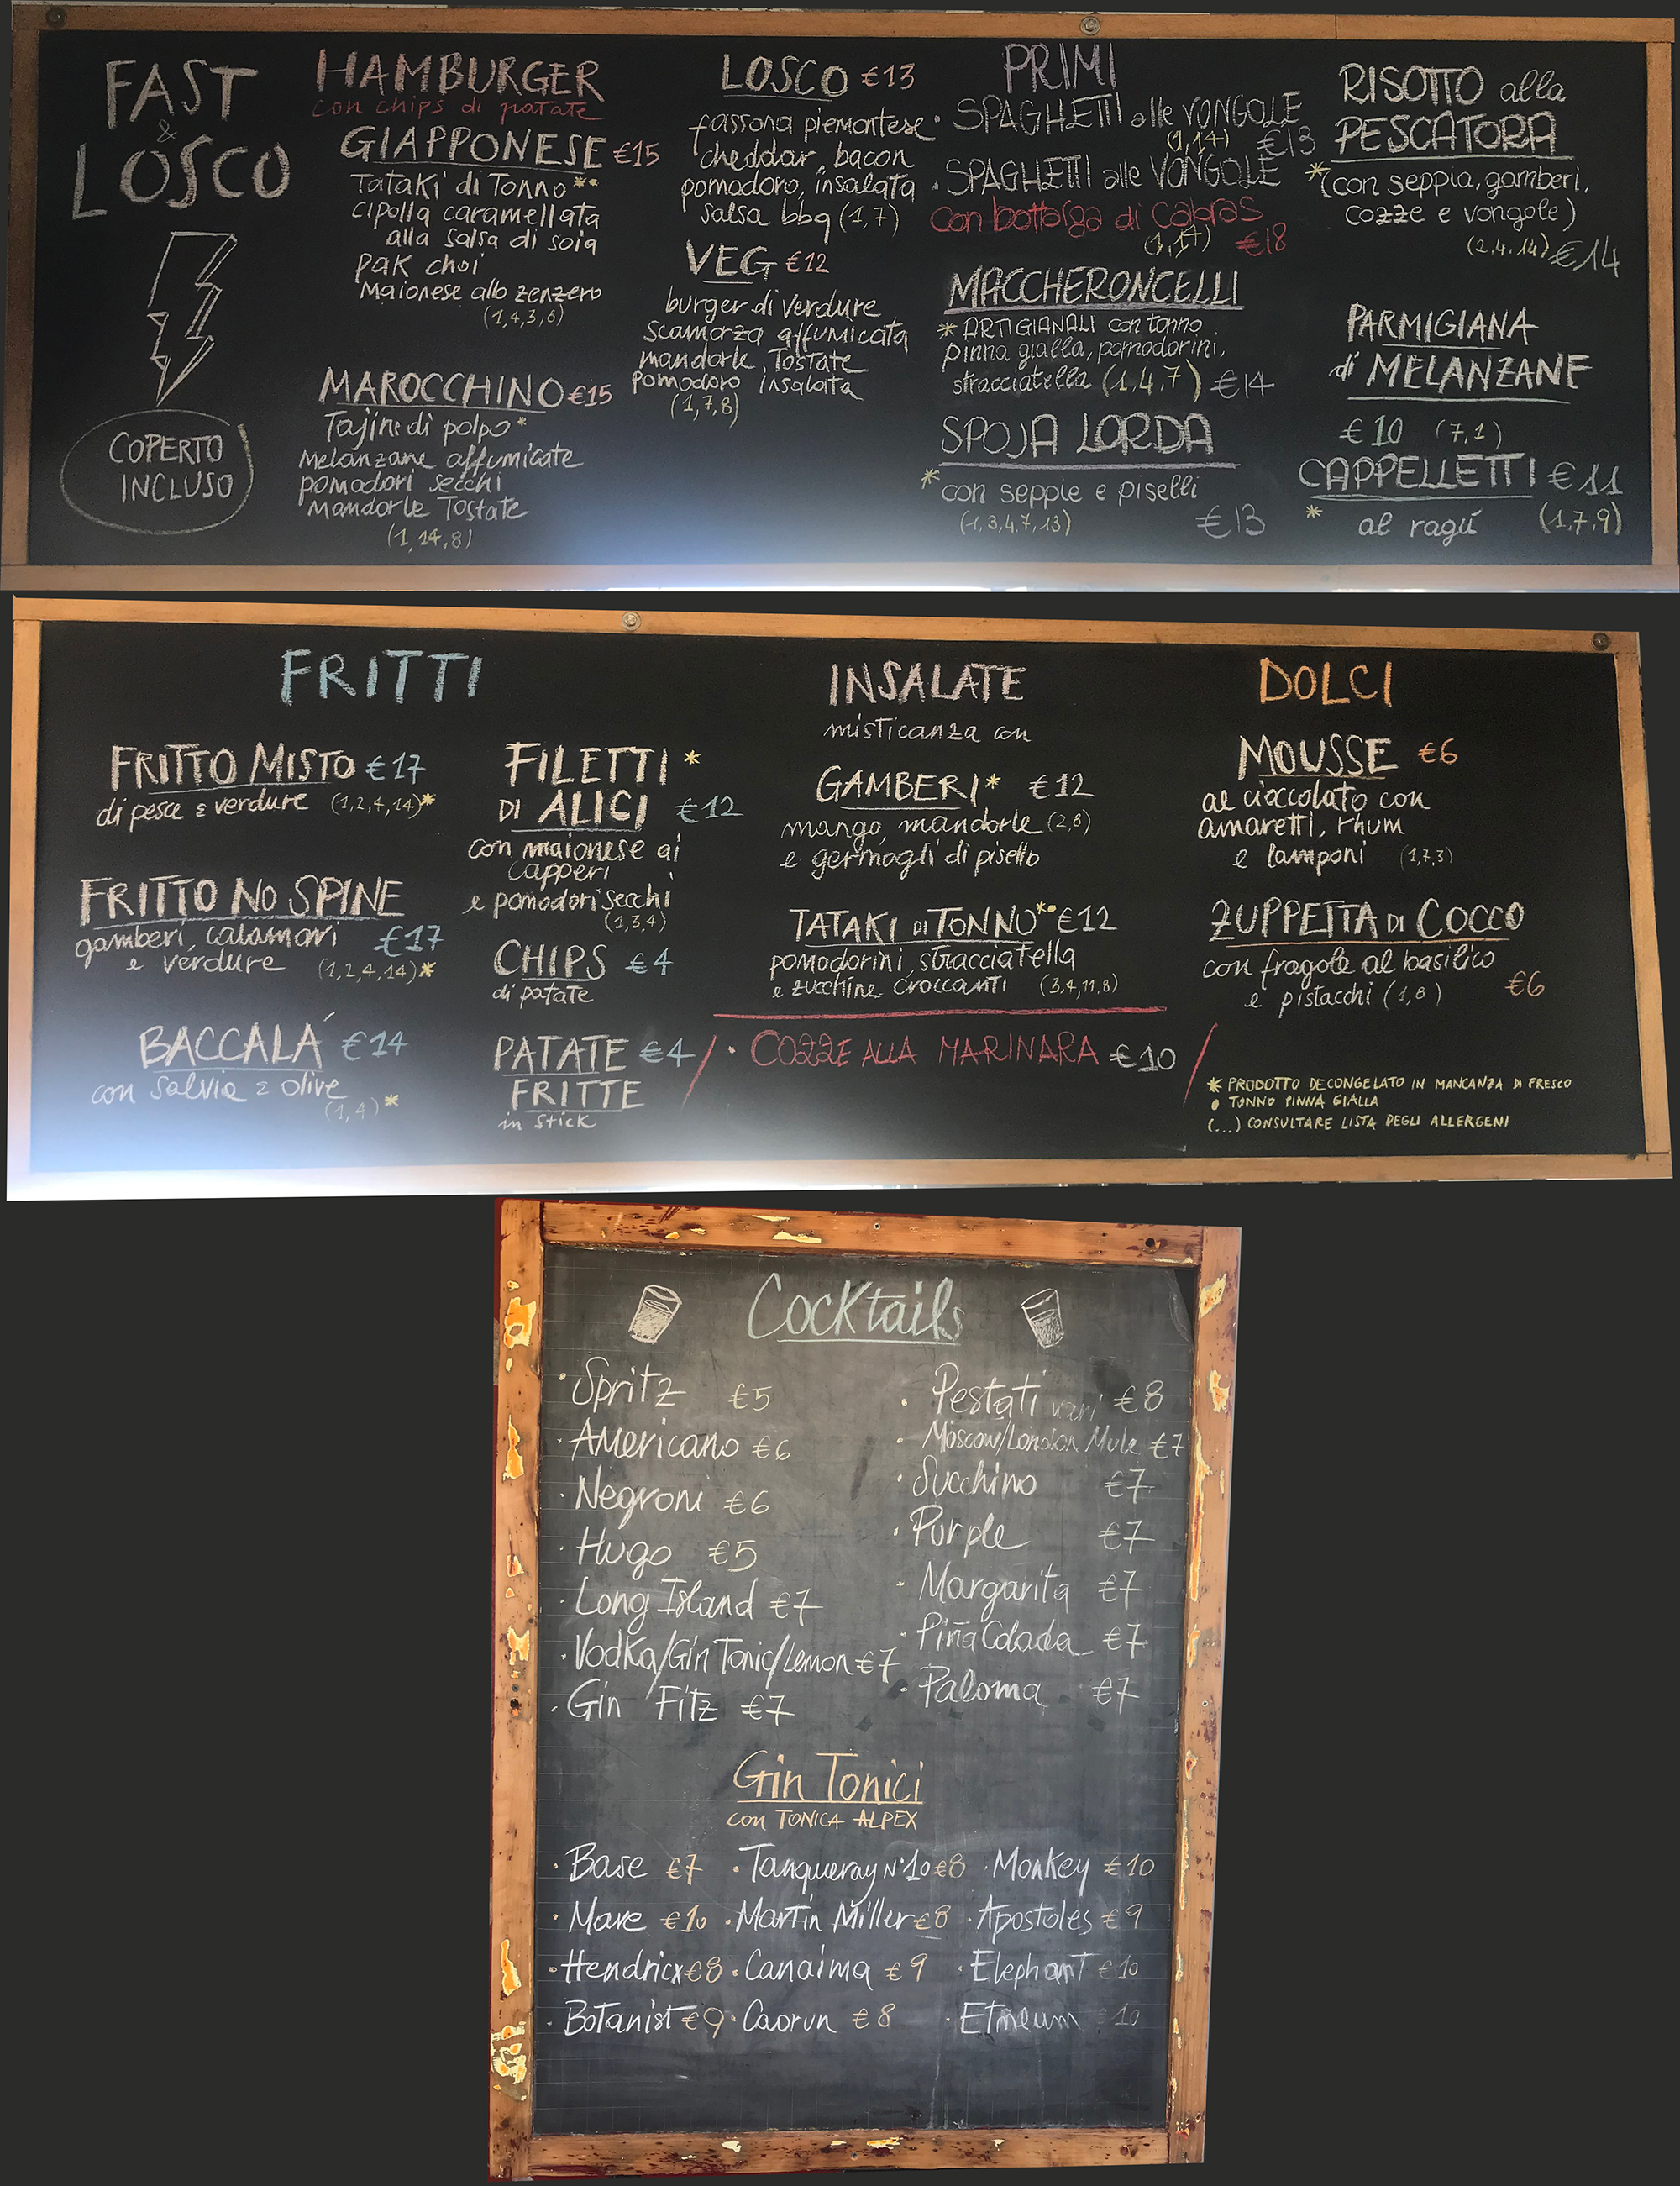 FAST
&
LOSCO
COPERTO
INCLUSO
HAMBURGER
con chips di patate
GIAPPONESE €15
Tataki di Tonno*•
cipolla caramellata
alla salsa di soia
pak choi
Maionese allo zenzero
(1,4,3,8)
MAROCCHINO €15
Tajine di polpo*
Melanzane affumicate
pomodori secchi
Mandorle Tostate
(1,14,8)
LOSCO €13
fassona piemontese
cheddar, bacon
pomodoro, insalata
salsa bbq (1,7)
VEG €12
burger di verdure
scamorza affumicata
mandorle Tostate
pomodoro insalata
(1,7,8)
PRIMI
• SPAGHETTI alle VONGOLE
(1,14) €13
• SPAGHETTI alle VONGOLE
con bottarga di Cabras
(1,14) €18
MACCHERONCELLI
* ARTIGIANALI con tonno
pinna gialla, pomodorini,
stracciatella (1,4,7) €14
SPOJA LORDA
* con seppie e piselli
(1,3,4,7,13) €13
RISOTTO alla
PESCATORA
* (con seppia, gamberi,
cozze e vongole)
(2,4,14) €14
PARMIGIANA
di MELANZANE
€10 (7,1)
CAPPELLETTI €11
* al ragú (1,7,9)
FRITTI
FRITTO MISTO €17
di pesce e verdure (1,2,4,14)*
FRITTO NO SPINE
gamberi, calamari €17
e verdure (1,2,4,14)*
BACCALÁ €14
con salvia e olive
(1,4)*
FILETTI *
DI ALICI €12
con maionese ai
capperi
e pomodori secchi
(1,3,4)
CHIPS €4
di patate
PATATE €4
FRITTE
in stick
INSALATE
misticanza con
GAMBERI* €12
mango, mandorle (2,8)
e germogli di pisello
TATAKI DI TONNO*• €12
pomodorini, stracciatella
e zucchine croccanti (3,4,11,8)
/ • COZZE ALLA MARINARA €10 /
DOLCI
MOUSSE €6
al cioccolato con
amaretti, rhum
e lamponi (1,7,3)
ZUPPETTA DI COCCO
con fragole al basilico
e pistacchi (1,8) €6
* PRODOTTO DECONGELATO IN MANCANZA DI FRESCO
• TONNO PINNA GIALLA
(...) CONSULTARE LISTA DEGLI ALLERGENI
Cocktails
• Spritz €5
• Americano €6
• Negroni €6
• Hugo €5
• Long Island €7
• Vodka/Gin Tonic/Lemon €7
• Gin Fitz €7
• Pestati vari €8
• Moscow/London Mule €7
• Succhino €7
• Purple €7
• Margarita €7
• Piña Colada €7
• Paloma €7
Gin Tonici
con TONICA ALPEX
• Base €7 • Tanqueray N°10 €8 • Monkey €10
• Mare €10 • Martin Miller €8 • Apostoles €9
• Hendricx €8 • Canaima €9 • Elephant €10
• Botanist €9 • Caorun €8 • Etneum €10